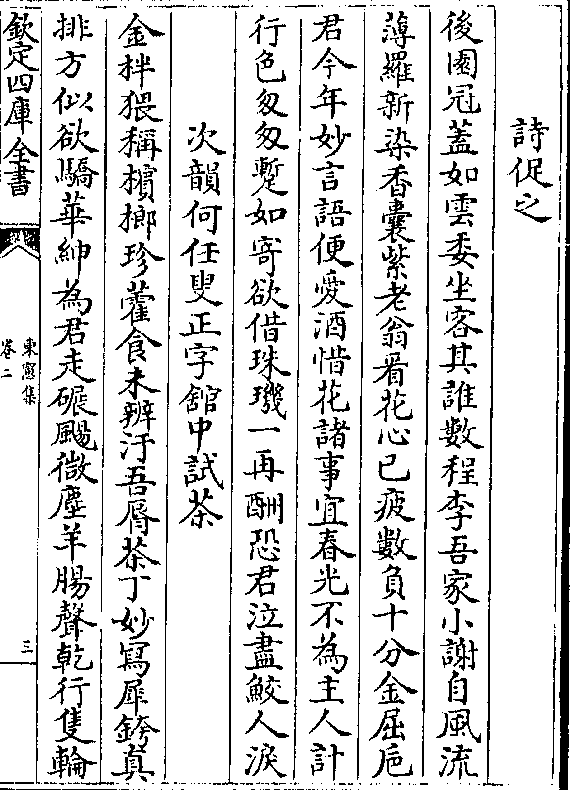 詩促之
後園冠蓋如雲委坐客其誰數程李吾家小謝自風流
薄羅新染香囊紫老翁看花心已疲數負十分金屈巵
君今年妙言語便愛酒惜花諸事宜春光不為主人計
行色匆匆蹔如寄欲借珠璣一再酬恐君泣盡鮫人淚
次韻何任叟正字館中試茶
金柈猥稱檳榔珍藿食未辨汙吾脣茶丁妙寫犀銙真
排方似欲驕華紳為君走碾颺微塵羊腸聲乾行隻輪
欽定四庫全書
東窻集
卷二
三